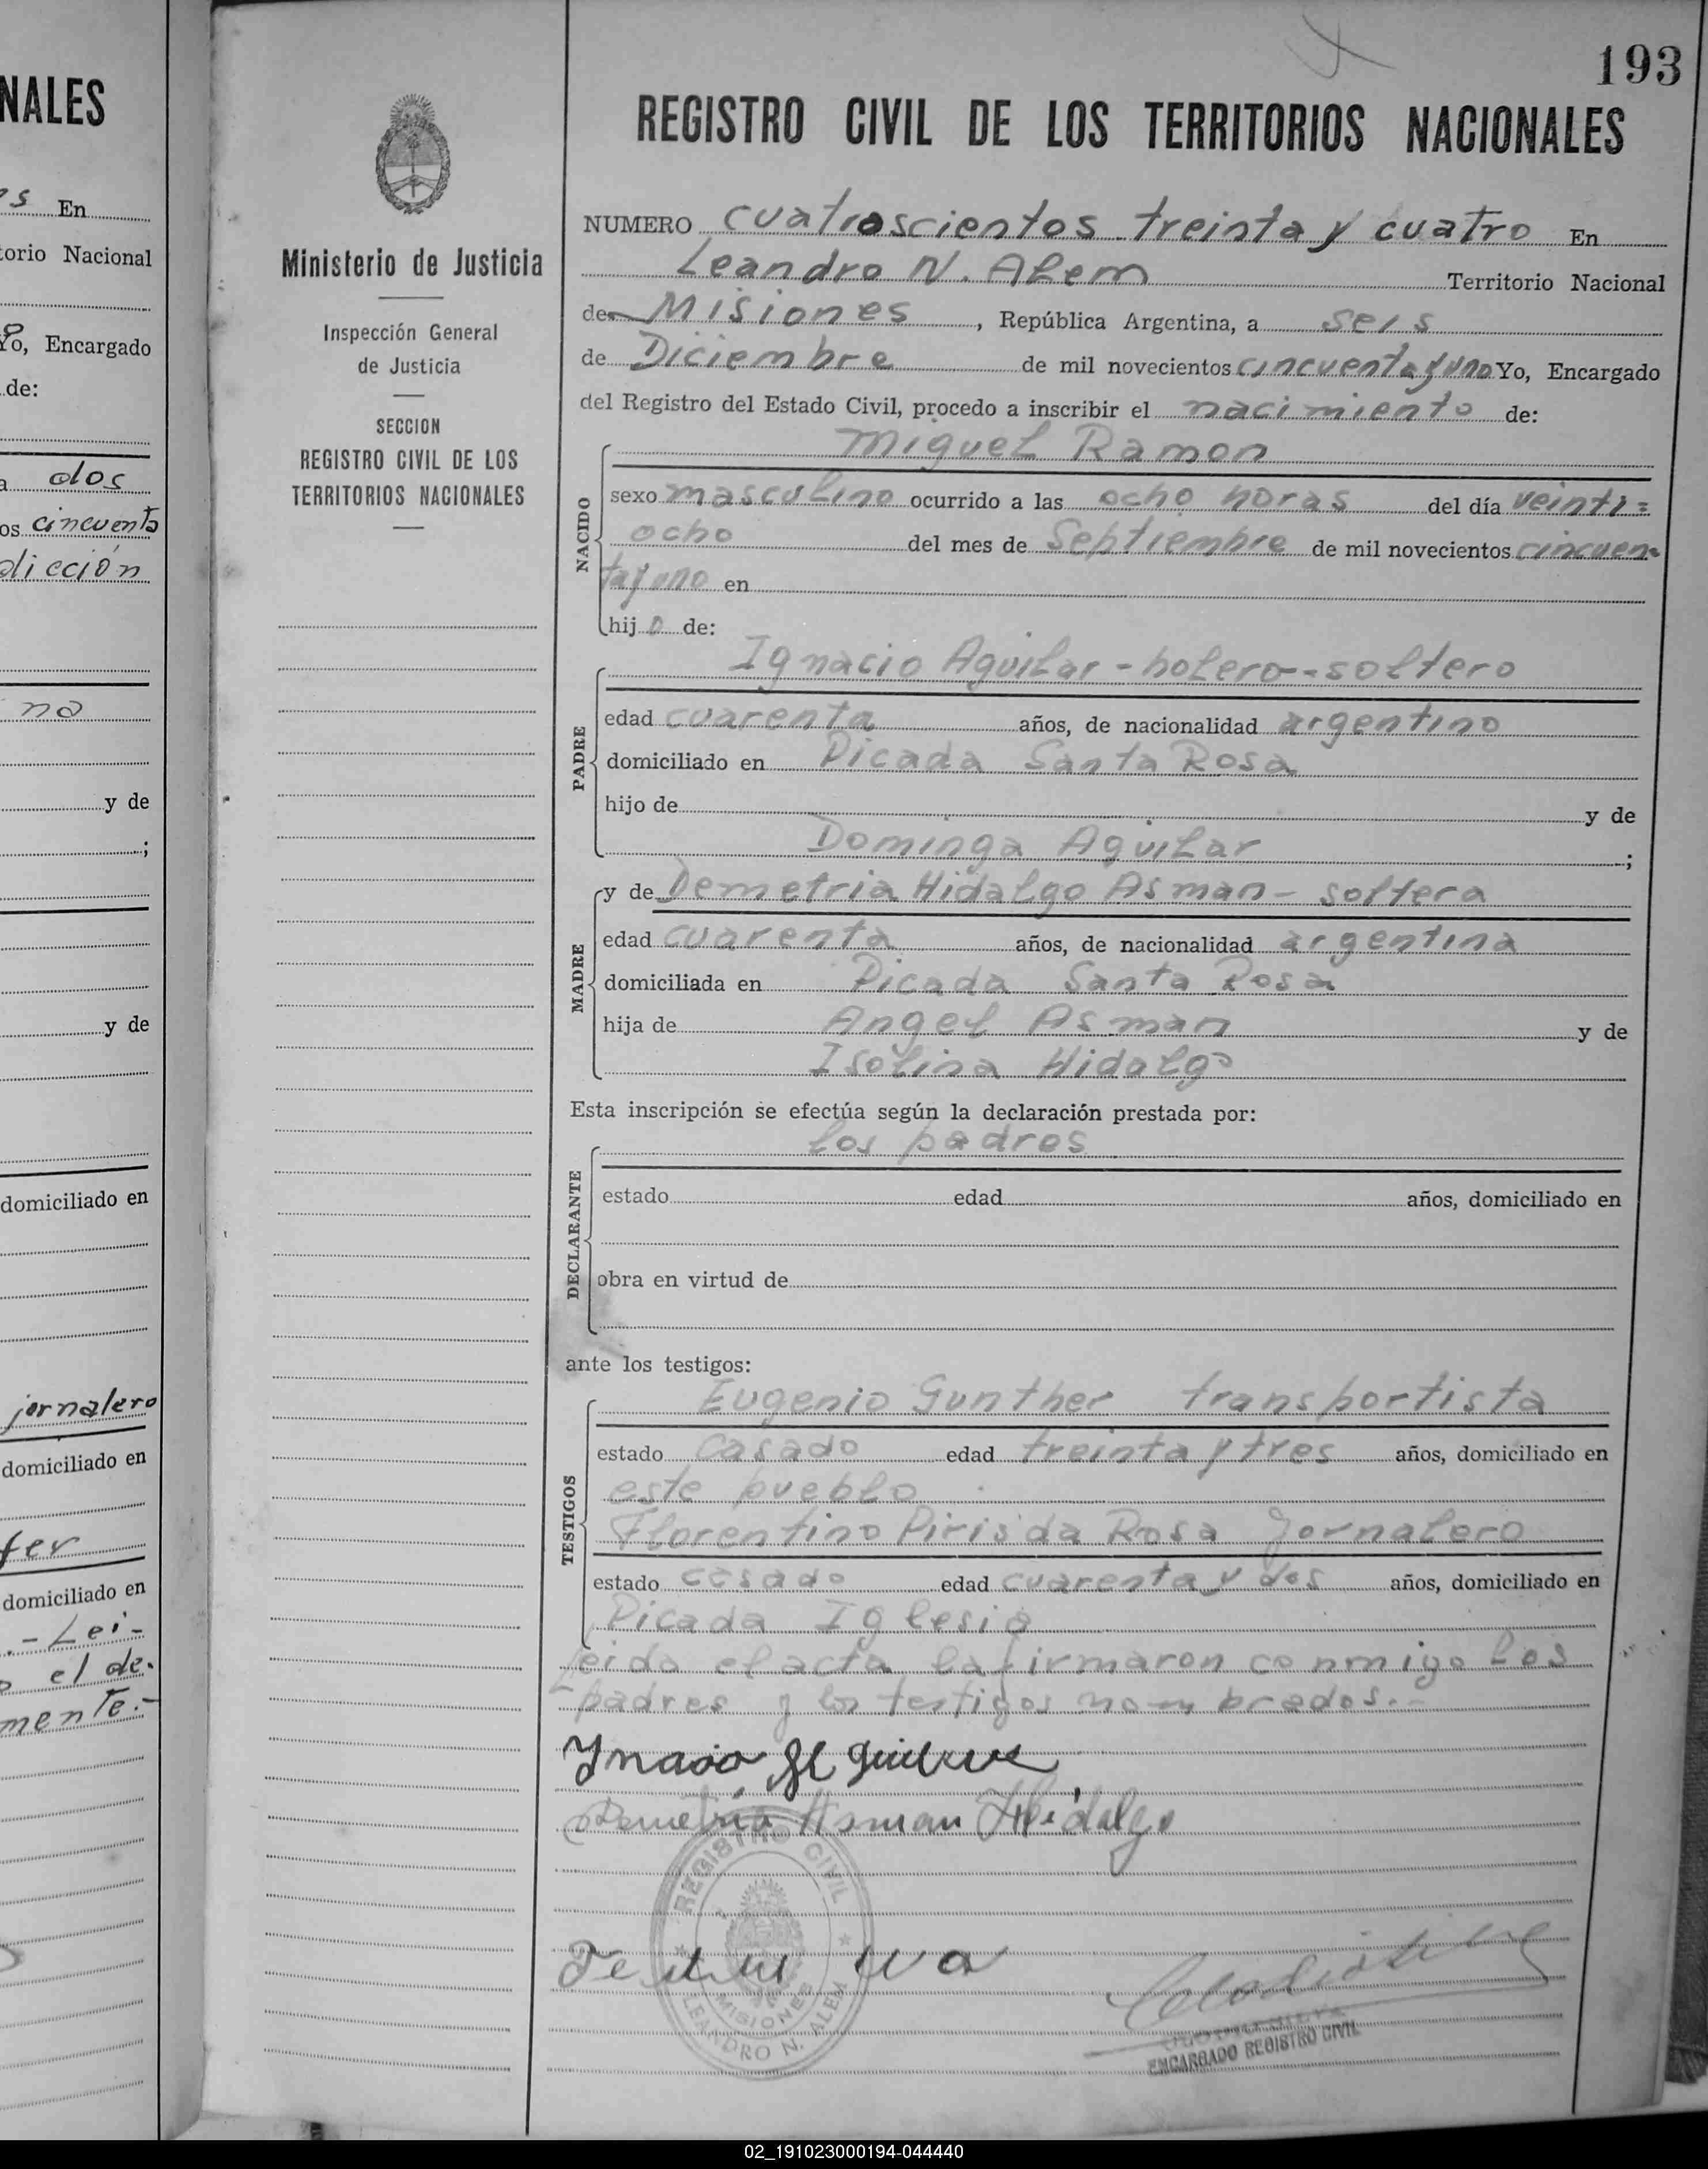 NALES
es En
torio Nacional
Yo, Encargado
de:
a dos
os cincuenta
dicción
na
y de
;
y de
domiciliado en
jornalero
domiciliado en
fer
domiciliado en
.- Lei-
o el de-
mente.-
Ministerio de Justicia
Inspección General
de Justicia
SECCION
REGISTRO CIVIL DE LOS
TERRITORIOS NACIONALES
193
REGISTRO CIVIL DE LOS TERRITORIOS NACIONALES
NUMERO cuatroscientos treinta y cuatro En
Leandro N. Alem Territorio Nacional
de Misiones, República Argentina, a seis
de Diciembre de mil novecientos cincuenta y uno Yo, Encargado
del Registro del Estado Civil, procedo a inscribir el nacimiento de:
Miguel Ramon
NACIDO
sexo masculino ocurrido a las ocho horas del día veinti=
ocho del mes de Septiembre de mil novecientos cincuen-
ta y uno en
hijo de:
Ignacio Aguilar - holero - soltero
PADRE
edad cuarenta años, de nacionalidad argentino
domiciliado en Picada Santa Rosa
hijo de y de
Dominga Aguilar ;
y de Demetria Hidalgo Asman - soltera
MADRE
edad cuarenta años, de nacionalidad argentina
domiciliada en Picada Santa Rosa
hija de Angel Asman y de
Isolina Hidalgo
Esta inscripción se efectúa según la declaración prestada por:
los padres
DECLARANTE
estado edad años, domiciliado en
obra en virtud de
ante los testigos:
Eugenio Gunther transportista
TESTIGOS
estado casado edad treinta y tres años, domiciliado en
este pueblo
Florentino Piris da Rosa Jornalero
estado casado edad cuarenta y dos años, domiciliado en
Picada Iglesia
Leida el acta, la firmaron conmigo los
padres y los testigos nombrados.-
Demetria Asman Hidalgo
REGISTRO CIVIL
MISIONES
LEANDRO N. ALEM
ENCARGADO REGISTRO CIVIL
02_191023000194-044440